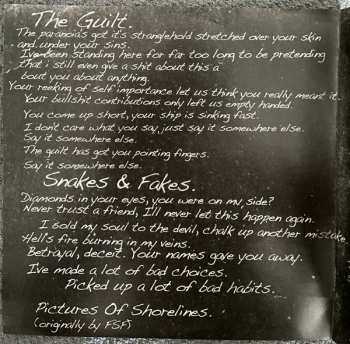 The Guilt.
The paranoia's got it's stranglehold stretched over your skin
and under your sins.
I've been standing here for far too long to be pretending
that i still even give a shit about this a
bout you about anything.
Your reeking of self importance let us think you really meant it.
Your bullshit contributions only left us empty handed.
You come up short, your ship is sinking fast.
I don't care what you say, just say it somewhere else.
Say it somewhere else.
The guilt has got you pointing fingers.
Say it somewhere else.
Snakes & Fakes.
Diamonds in your eyes, you were on my side?
Never trust a friend, I'll never let this happen again.
I sold my soul to the devil, chalk up another mistake
Hell's fire burning in my veins.
Betrayal, deceit. Your names gave you away.
Ive made a lot of bad choices.
Picked up a lot of bad habits.
Pictures Of Shorelines.
(originally by FSF)